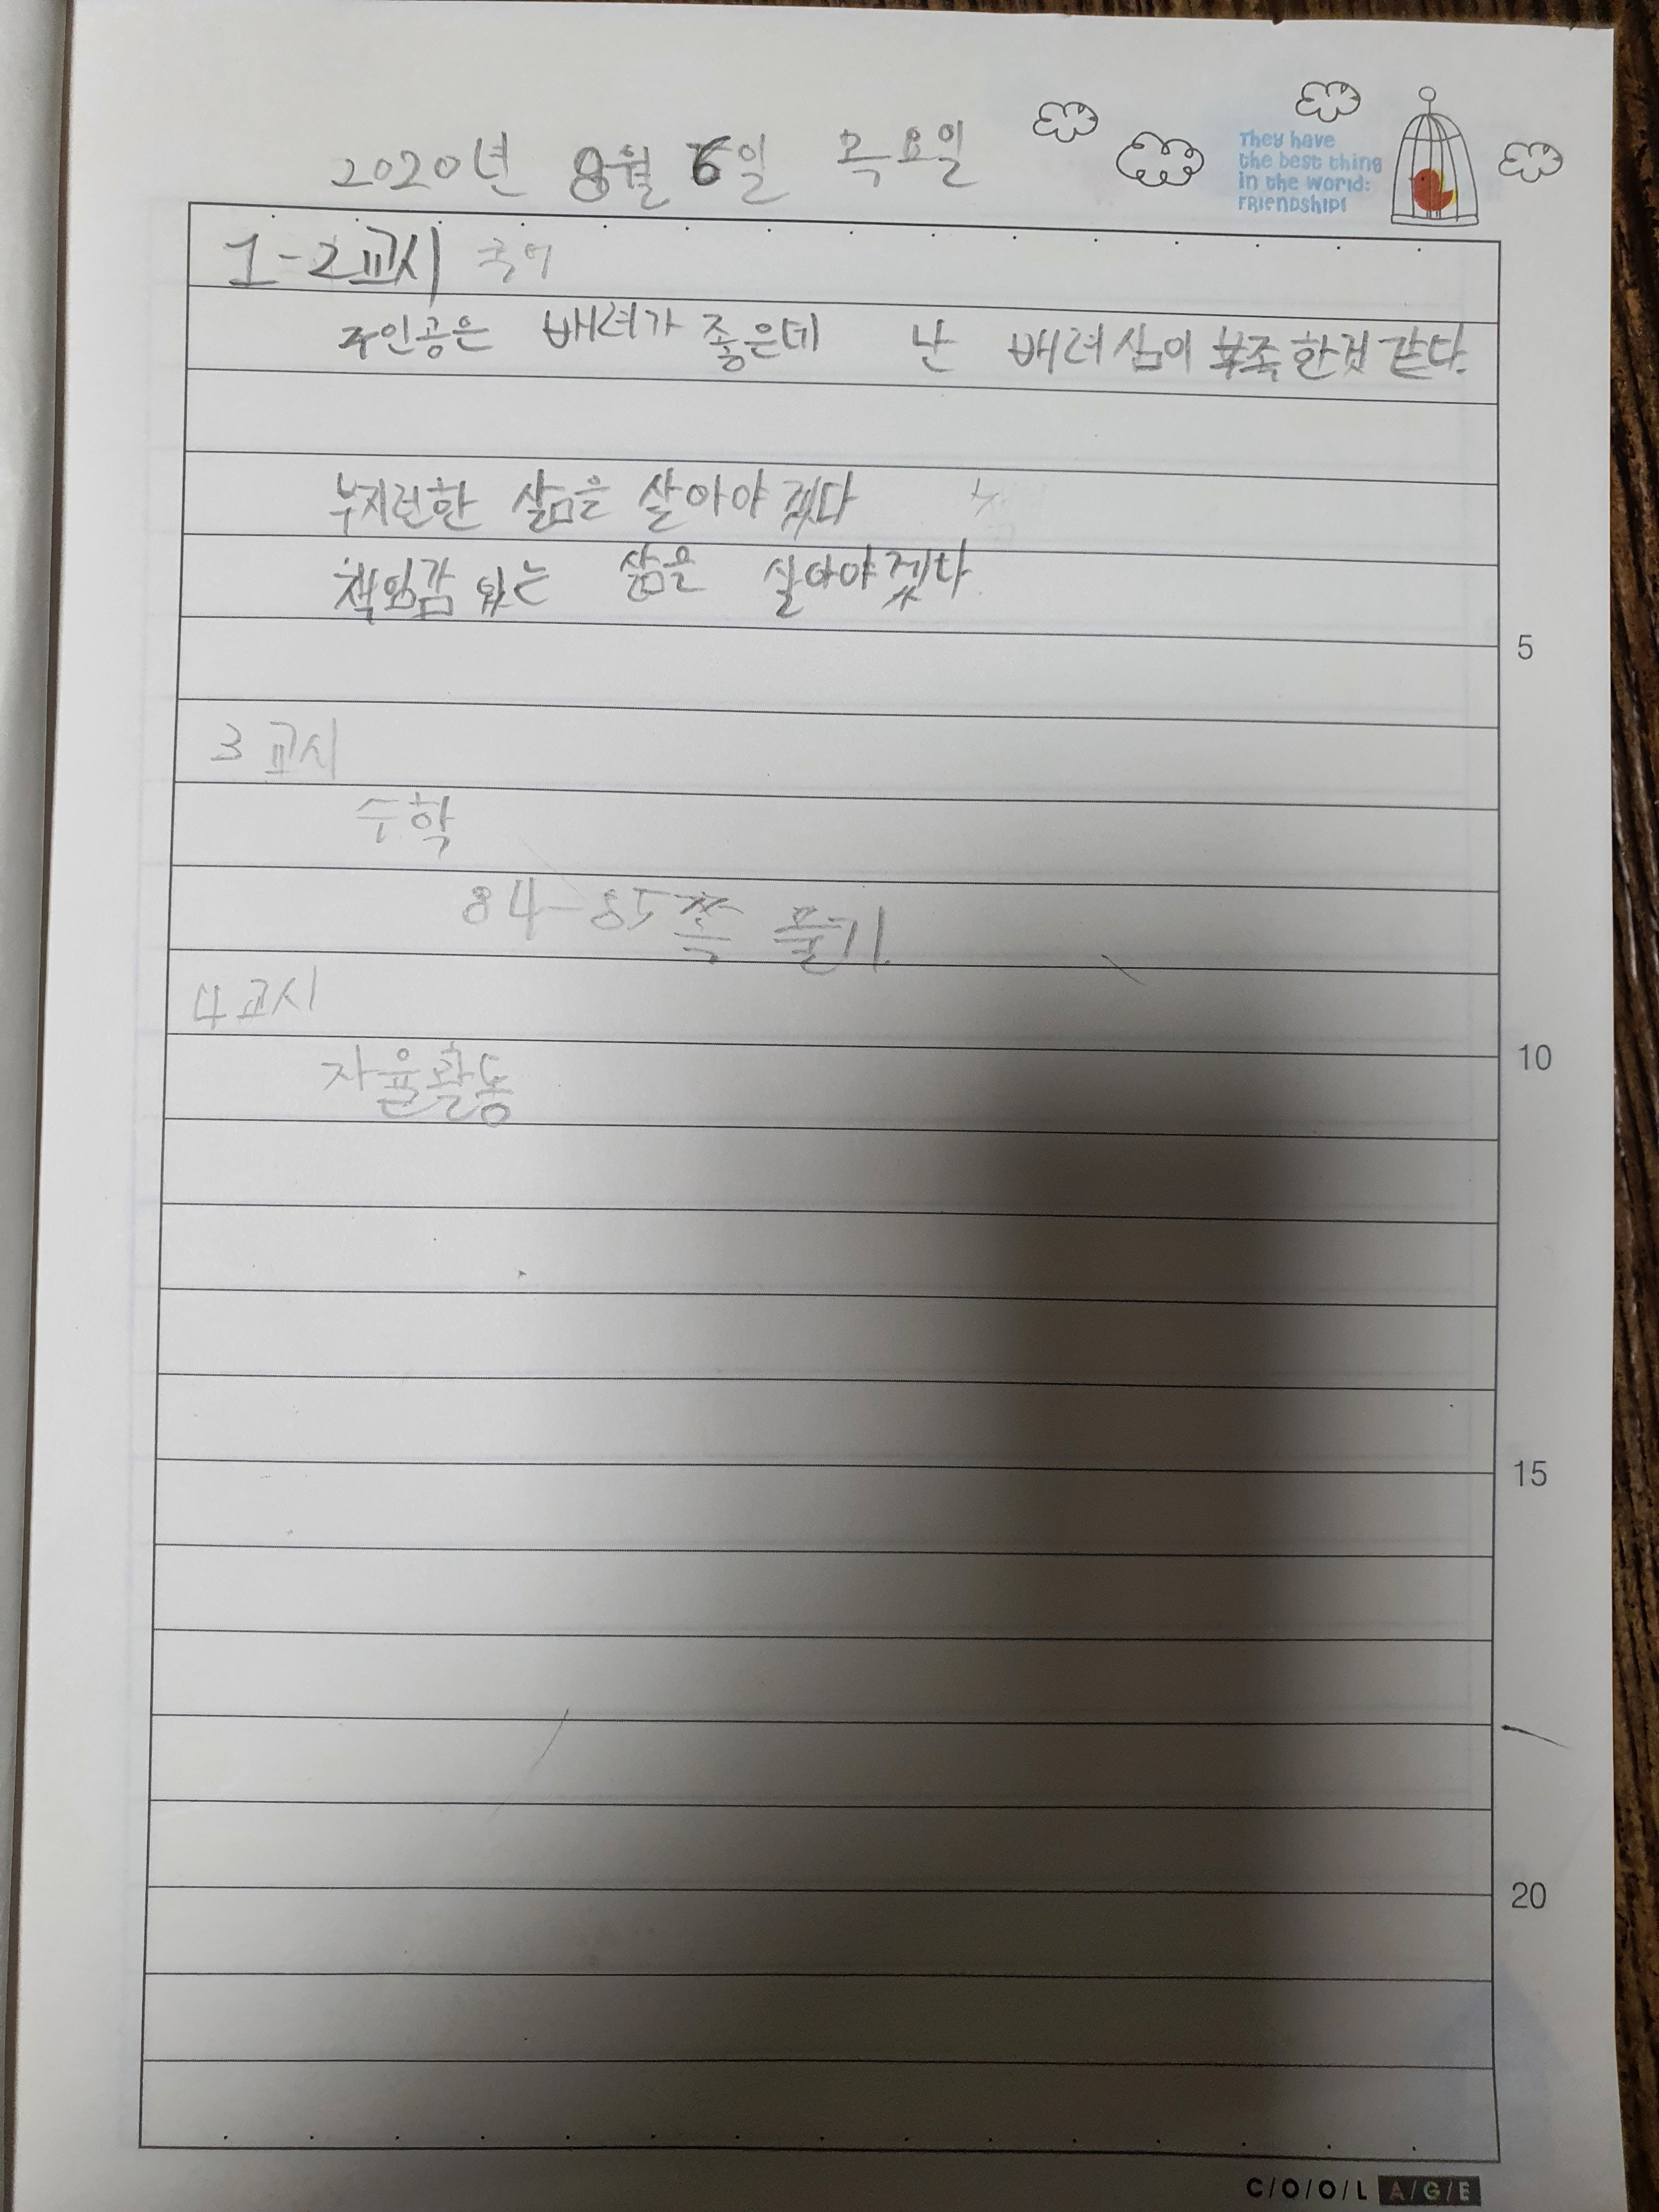 2020년 8월 6일 목요일
They have
the best thing
in the world:
FRIENDSHIP!
1-2교시 국어
주인공은 배려가 좋은데 난 배려심이 부족한것 같다.
부지런한 삶을 살아야겠다
책임감 있는 삶을 살아야겠다.
5
3교시
수학
84-85쪽 풀기
4교시
10
자율활동
15
20
C/O/O/L A/G/E